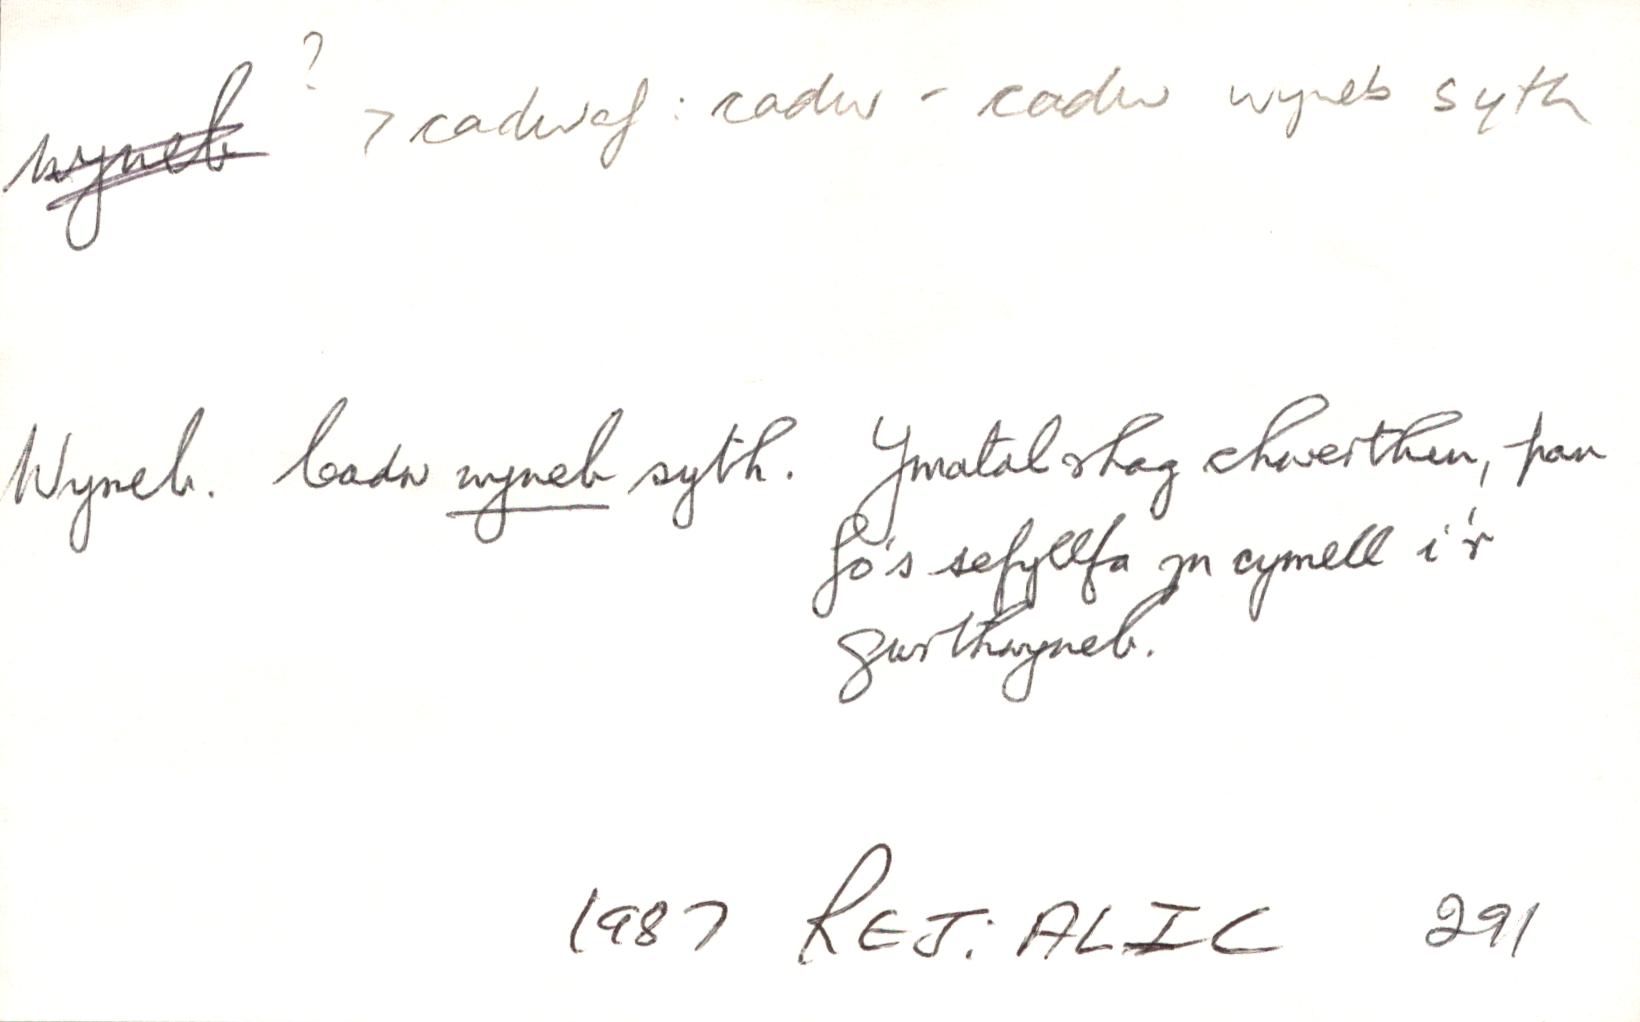 wyneb ? > cadwaf : cadw - cadw wyneb syth
Wyneb. Cadw wyneb syth. Ymatal rhag chwerthin, pan
fo's sefyllfa yn cymell i'r
gwrthwyneb.
1987 REJ: ALIC 291